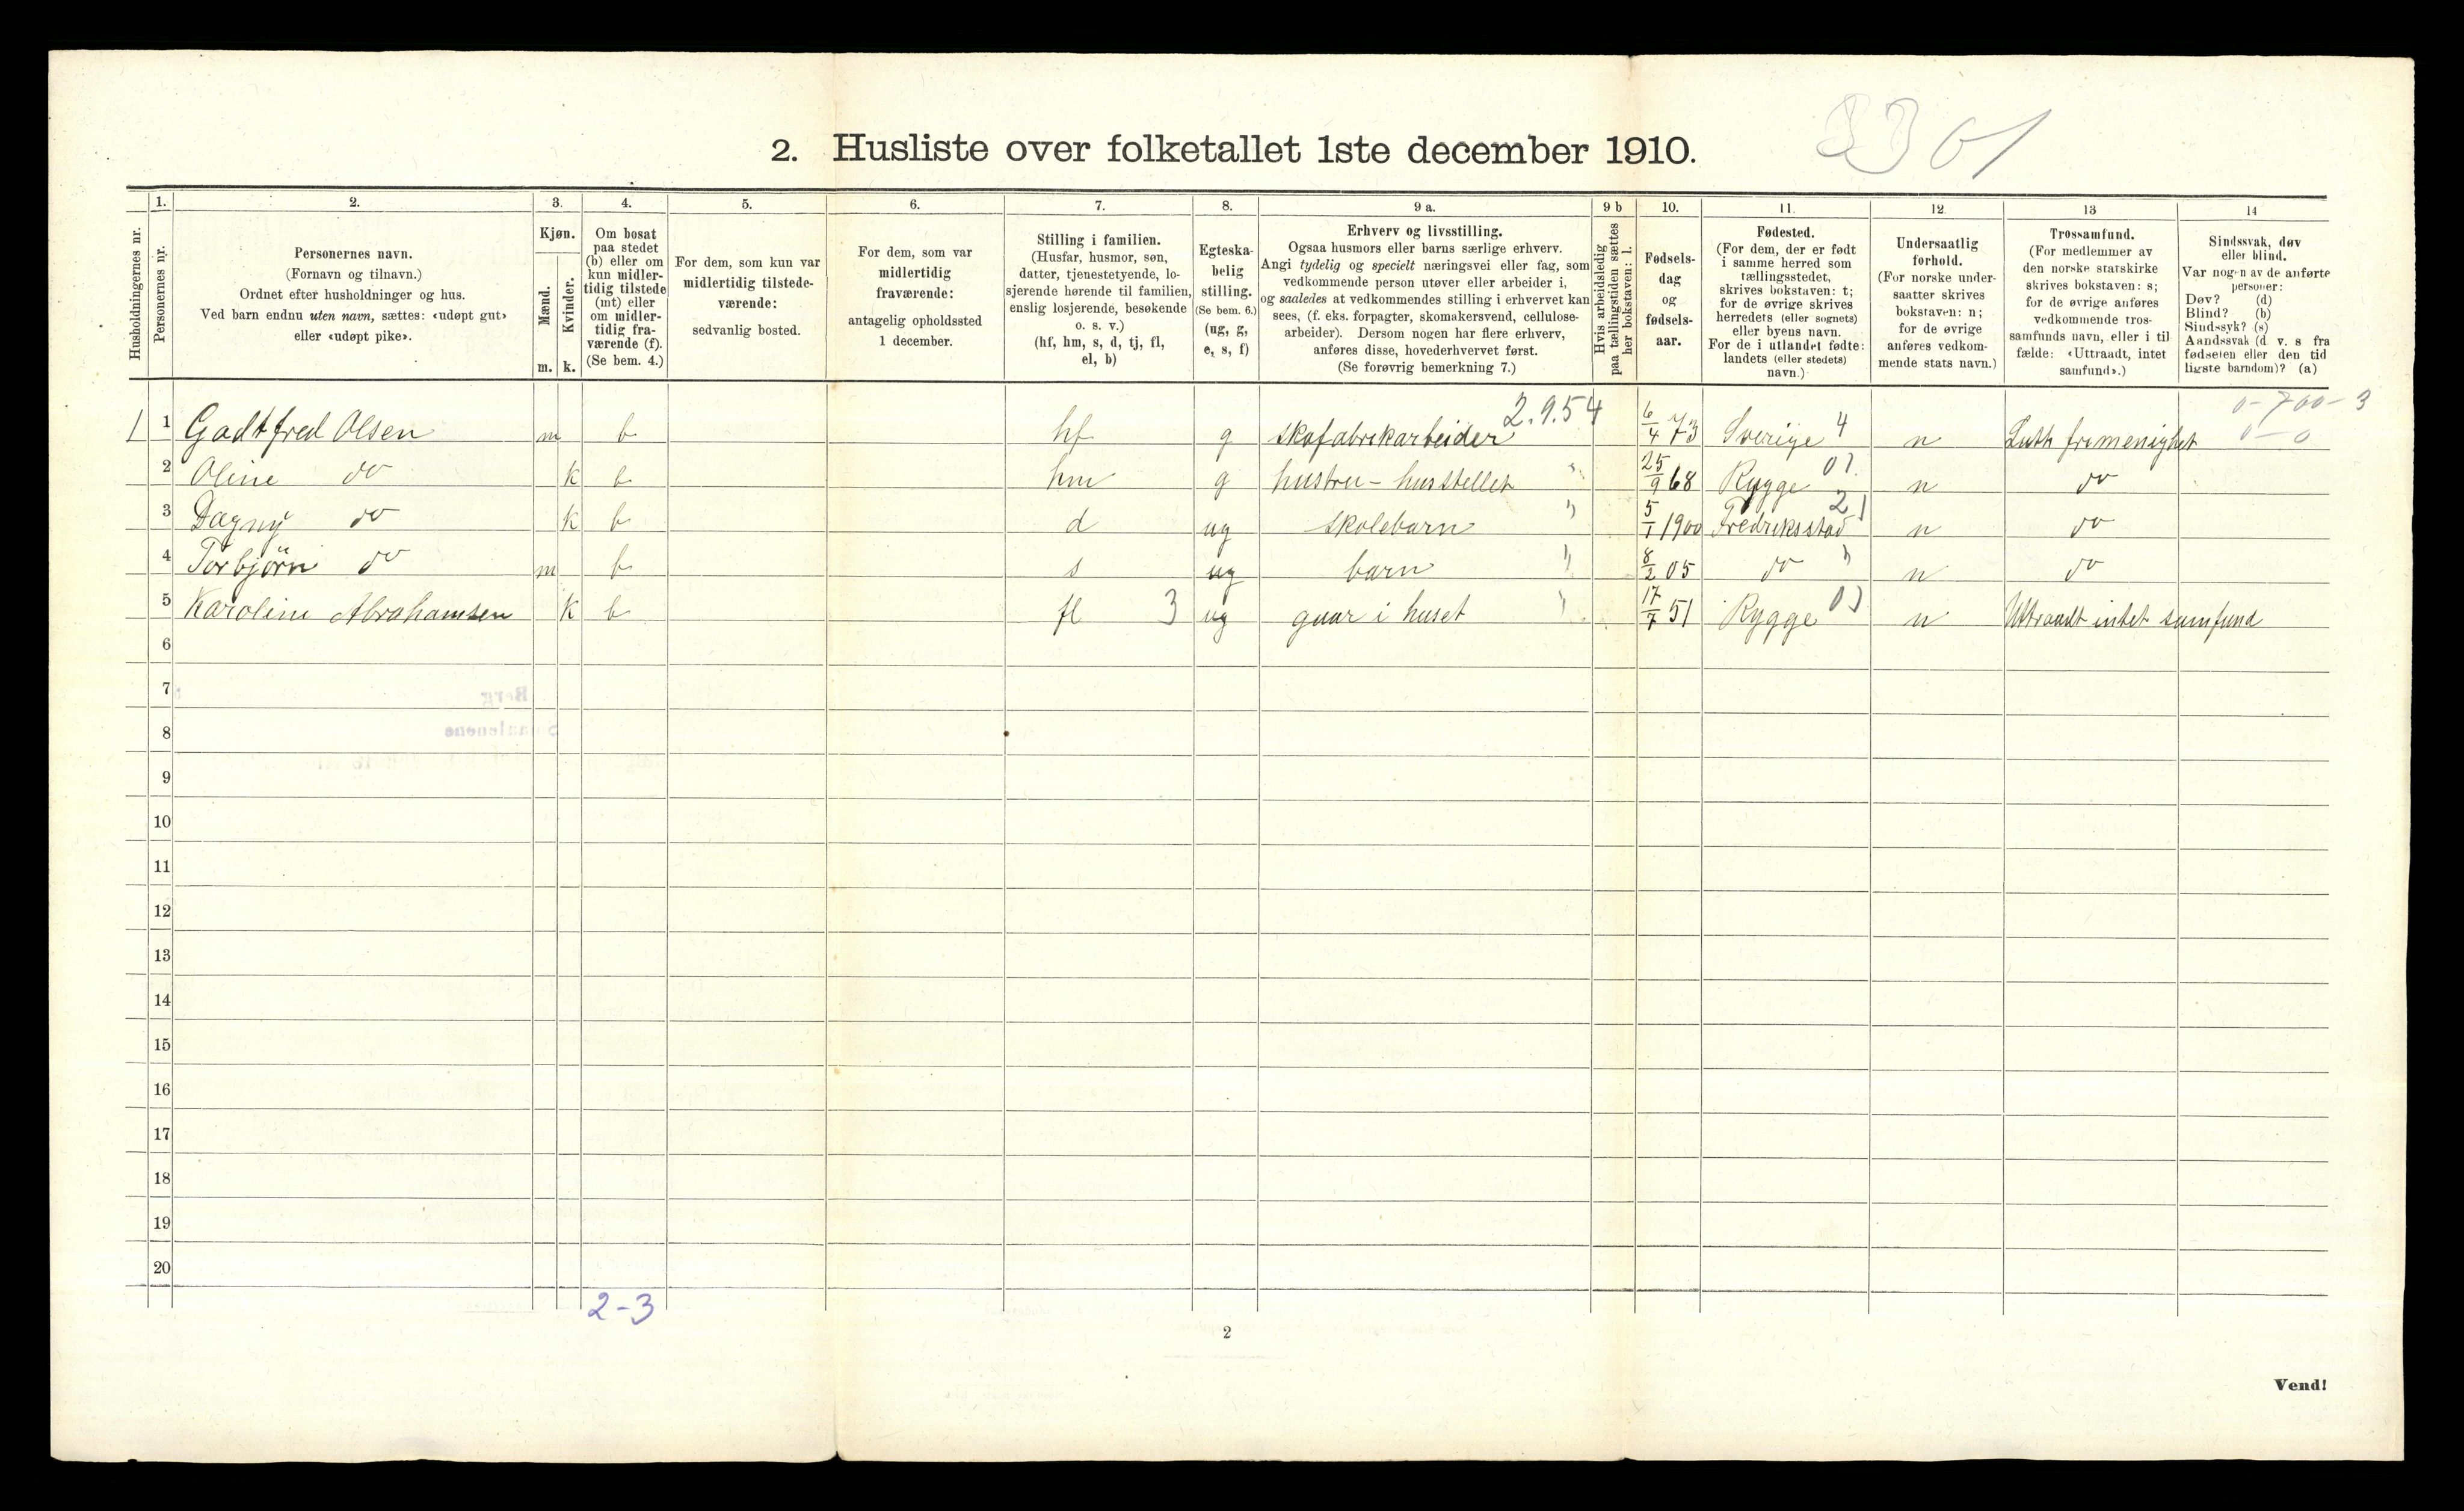 3301
2. Husliste over folketallet 1ste december 1910.
Husholdningernes nr.
1. Personernes nr.
2. Personernes navn.
(Fornavn og tilnavn.)
Ordnet efter husholdninger og hus.
Ved barn endnu uten navn, sættes: «udøpt gut»
eller «udøpt pike».
3. Kjøn.
Mænd. m.
Kvinder. k.
4. Om bosat
paa stedet
(b) eller om
kun midler-
tidig tilstede
(mt) eller
om midler-
tidig fra-
værende (f).
(Se bem. 4.)
5. For dem, som kun var
midlertidig tilstede-
værende:
sedvanlig bosted.
6. For dem, som var
midlertidig
fraværende:
antagelig opholdssted
1 december.
7. Stilling i familien.
(Husfar, husmor, søn,
datter, tjenestetyende, lo-
sjerende hørende til familien,
enslig losjerende, besøkende
o. s. v.)
(hf, hm, s, d, tj, fl,
el, b)
8. Egteska-
belig
stilling.
(Se bem. 6.)
(ug, g,
e, s, f)
9 a. Erhverv og livsstilling.
Ogsaa husmors eller barns særlige erhverv.
Angi tydelig og specielt næringsvei eller fag, som
vedkommende person utøver eller arbeider i,
og saaledes at vedkommendes stilling i erhvervet kan
sees, (f. eks. forpagter, skomakersvend, cellulose-
arbeider). Dersom nogen har flere erhverv,
anføres disse, hovederhvervet først.
(Se forøvrig bemerkning 7.)
9 b Hvis arbeidsledig
paa tællingstiden sættes
her bokstaven: l.
10. Fødsels-
dag
og
fødsels-
aar.
11. Fødested.
(For dem, der er født
i samme herred som
tællingsstedet,
skrives bokstaven: t;
for de øvrige skrives
herredets (eller sognets)
eller byens navn.
For de i utlandet fødte:
landets (eller stedets)
navn.)
12 Undersaatlig
forhold.
(For norske under-
saatter skrives
bokstaven: n;
for de øvrige
anføres vedkom-
mende stats navn.)
13 Trossamfund.
(For medlemmer av
den norske statskirke
skrives bokstaven: s;
for de øvrige anføres
vedkommende tros-
samfunds navn, eller i til
fælde: «Uttraadt, intet
samfund».)
14 Sindssvak, døv
eller blind.
Var nogen av de anførte
personer:
Døv? (d)
Blind? (b)
Sindssyk? (s)
Aandssvak (d v. s fra
fødselen eller den tid
ligste barndom)? (a)
2.9.54 0-700-3
1 1 Godtfred Olsen m b hf g skofabrikarbeider 6/4 73 Sverige 4 n Luth frimenighet 0-0
2 Oline do k b hm g hustru - husstellet " 25/9 68 Rygge 01 n do
3 Dagny do k b d ug skolebarn " 5/1 1900 Fredriksstad 21 n do
4 Torbjörn do m b s ug barn " 8/2 05 do " n do
5 Karoline Abrahamsen k b fl 3 ug gaar i huset " 17/7 51 Rygge 01 n Uttraadt intet samfund
6
7
8
9
10
11
12
13
14
15
16
17
18
19
20
2-3
2
Vend!